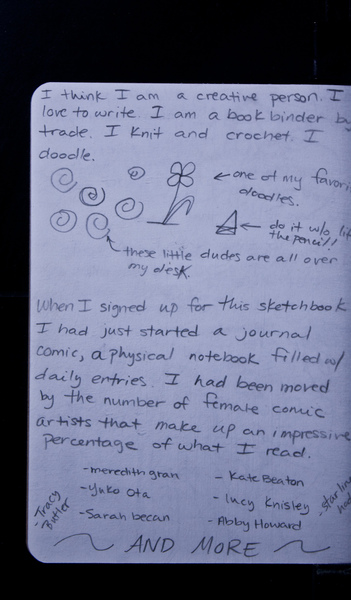 I think I am a creative person. I
love to write. I am a book binder by
trade. I knit and crochet. I
doodle.
← one of my favori
doodles.
← do it w/o lif
the pencil!
these little dudes are all over
my desk.
When I signed up for this sketchbook
I had just started a journal
comic, a physical notebook filled w/
daily entries. I had been moved
by the number of female comic
artists that make up an impressive
percentage of what I read.
- meredith gran
- Kate Beaton
- Yuko Ota
- Lucy Knisley
- Tracy Butler
- Sarah becan
- Abby Howard
~ AND MORE ~